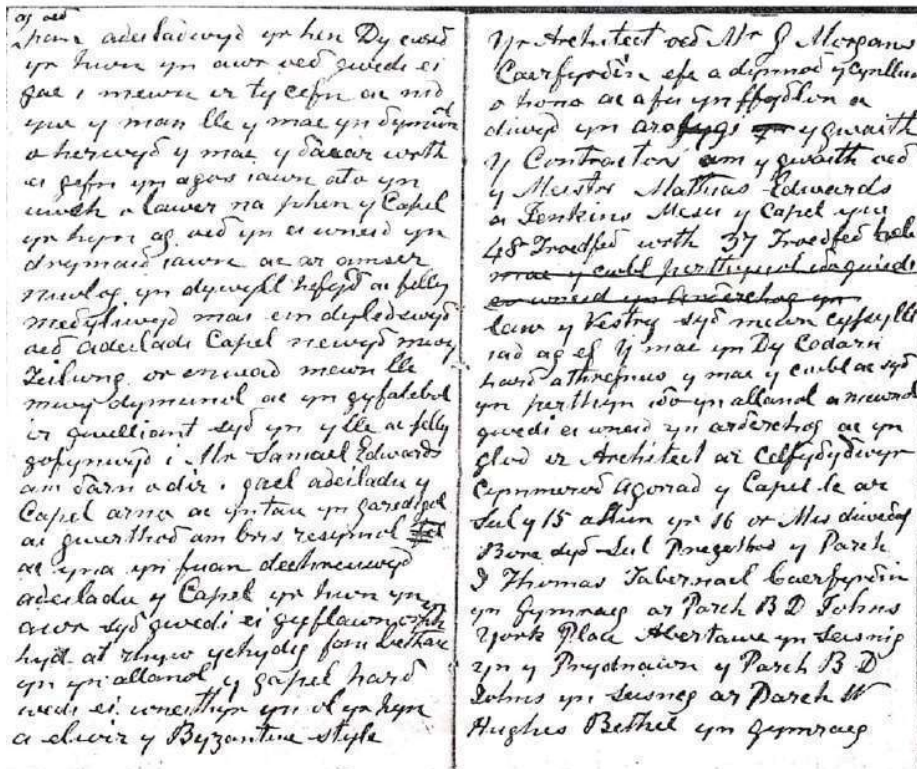 ag oeđ
pan adeiladwyđ yr hen Dy cwrđ
yr hwn yn awr oeđ gwedi ei
gae i mewn ir ty cefn ac nid
yw y man lle y mae yn đymunol
oherwyđ y mae y đaear wrth
ei gefn yn agos iawn ato yn
uwch o lawer na phen y Capel
yr hyn ag oeđ yn ei wneid yn
drymaiđ iawn ac ar amser
niwlog yn dywyll hefyđ ac felly
međyliwyđ mai ein dyledswyđ
oeđ adeiladi Capel newyđ mwy
Teilwng or enwad mewn lle
mwy dymunol ac yn gyfatebol
ir gwelliant syđ yn y lle ac felly
gofynwyđ i Mr Samuel Edwards
am đarn o dir i gael adeiladu y
Capel arno ac yntau yn garedigol
ai gwerthođ am bris resymol
ac yna yn fuan dechreuwyđ
adeiladu y Capel yr hwn yn
awr syđ gwedi ei gyflawny
hyd at rhyw ychydig fân bethau
yn yn allanol y gapel harđ
wedi ei wneithyr yn ol yr hyn
a elwir y Byzantine style
Yr Architect oeđ Mr J Morgans
Caerfyrđin efe a dynnođ y cynllun
o hono ac a fu yn ffyđlon a
diwyd yn arolygs y gwaith
Y Contractors am y gwaith oeđ
y Meistri Mathias Edwards
a Jenkins Mesu y Capel yw
48 Troedfeđ wrth 37 Troedfeđ
mae y cwbl perthynol iđo gwedi
ei wneid yn arđerchog yn
law y Vestry syđ mewn cyfsyllt
iad ag ef Y mae yn Dy Codarn
harđ a threfnus y mae y cwbl ac syđ
yn perthyn iđo yn allanol a mewnol
gwedi ei wneid yn arđerchog ac yn
glod ir Architect ar Celfyđyđwyr
Cymmerođ Agoriad y Capel le ar
Sul y 15 a Llun yr 16 or Mis diweđaf
Bore dyđ Sul Pregethođ y Parch
J Thomas Tabernacl Caerfyrđin
yn Gymraeg ar Parch B D Johns
York Place Abertawe yn Seisnig
yn y Prydnawn y Parch B D
Johns yn Seisneg ar Parch W
Hughes Bethel yn Gymraeg